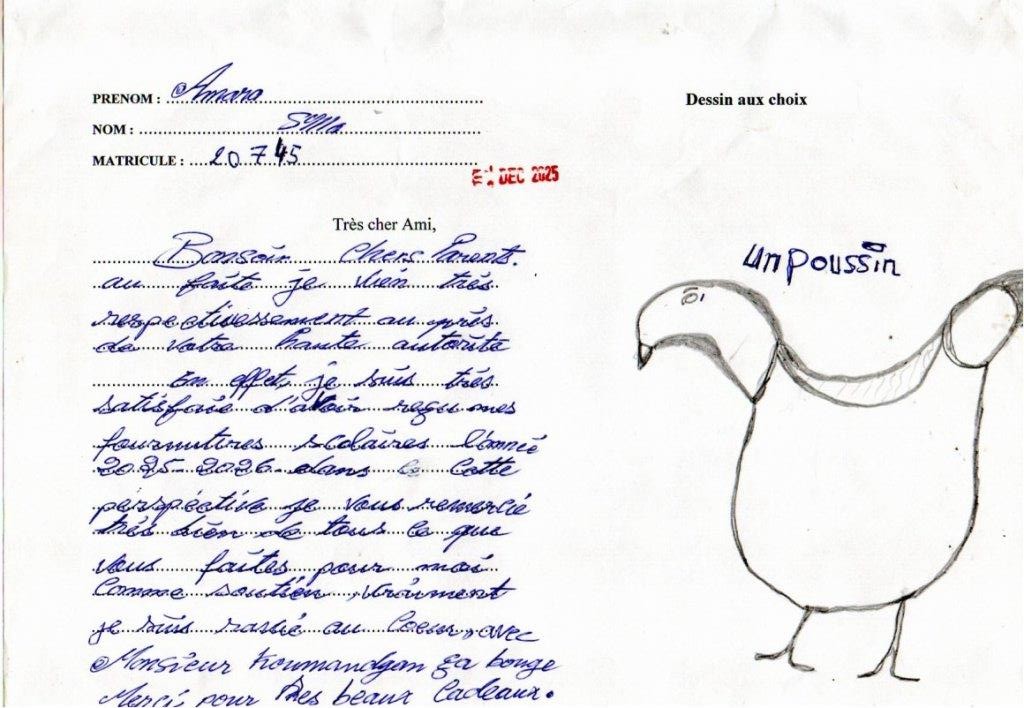 PRENOM : Amara
Dessin aux choix
NOM : Sylla
MATRICULE : 20745
DEC 2025
Très cher Ami,
Bonsoir chers Parents.
au faite je vien très
respectivessement au près
de votre haute autorité
En effet, je suis très
satisfaie d'avoir reçu mes
fournuitres scolaires l'année
2025-2026 dans cette
perspéctive je vous remercie
très bien de tous ce que
vous faites pour moi
Comme soutien, vraiment
je suis rassié au Coeur, avec
Monsieur Koumandgan ça bouge
Merci pour mes beaux Cadeaux.
un poussin